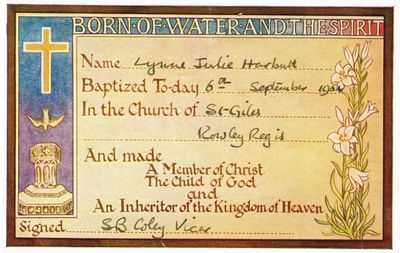 BORN·OF·WATER·AND·THE·SPIRIT
Name Lynne Julie Harbutt
Baptized To-day 6th September 1964
In the Church of St Giles
Rowley Regis
And made
A Member of Christ
The Child of God
and
An Inheritor of the Kingdom of Heaven
Signed SB Coley Vicar